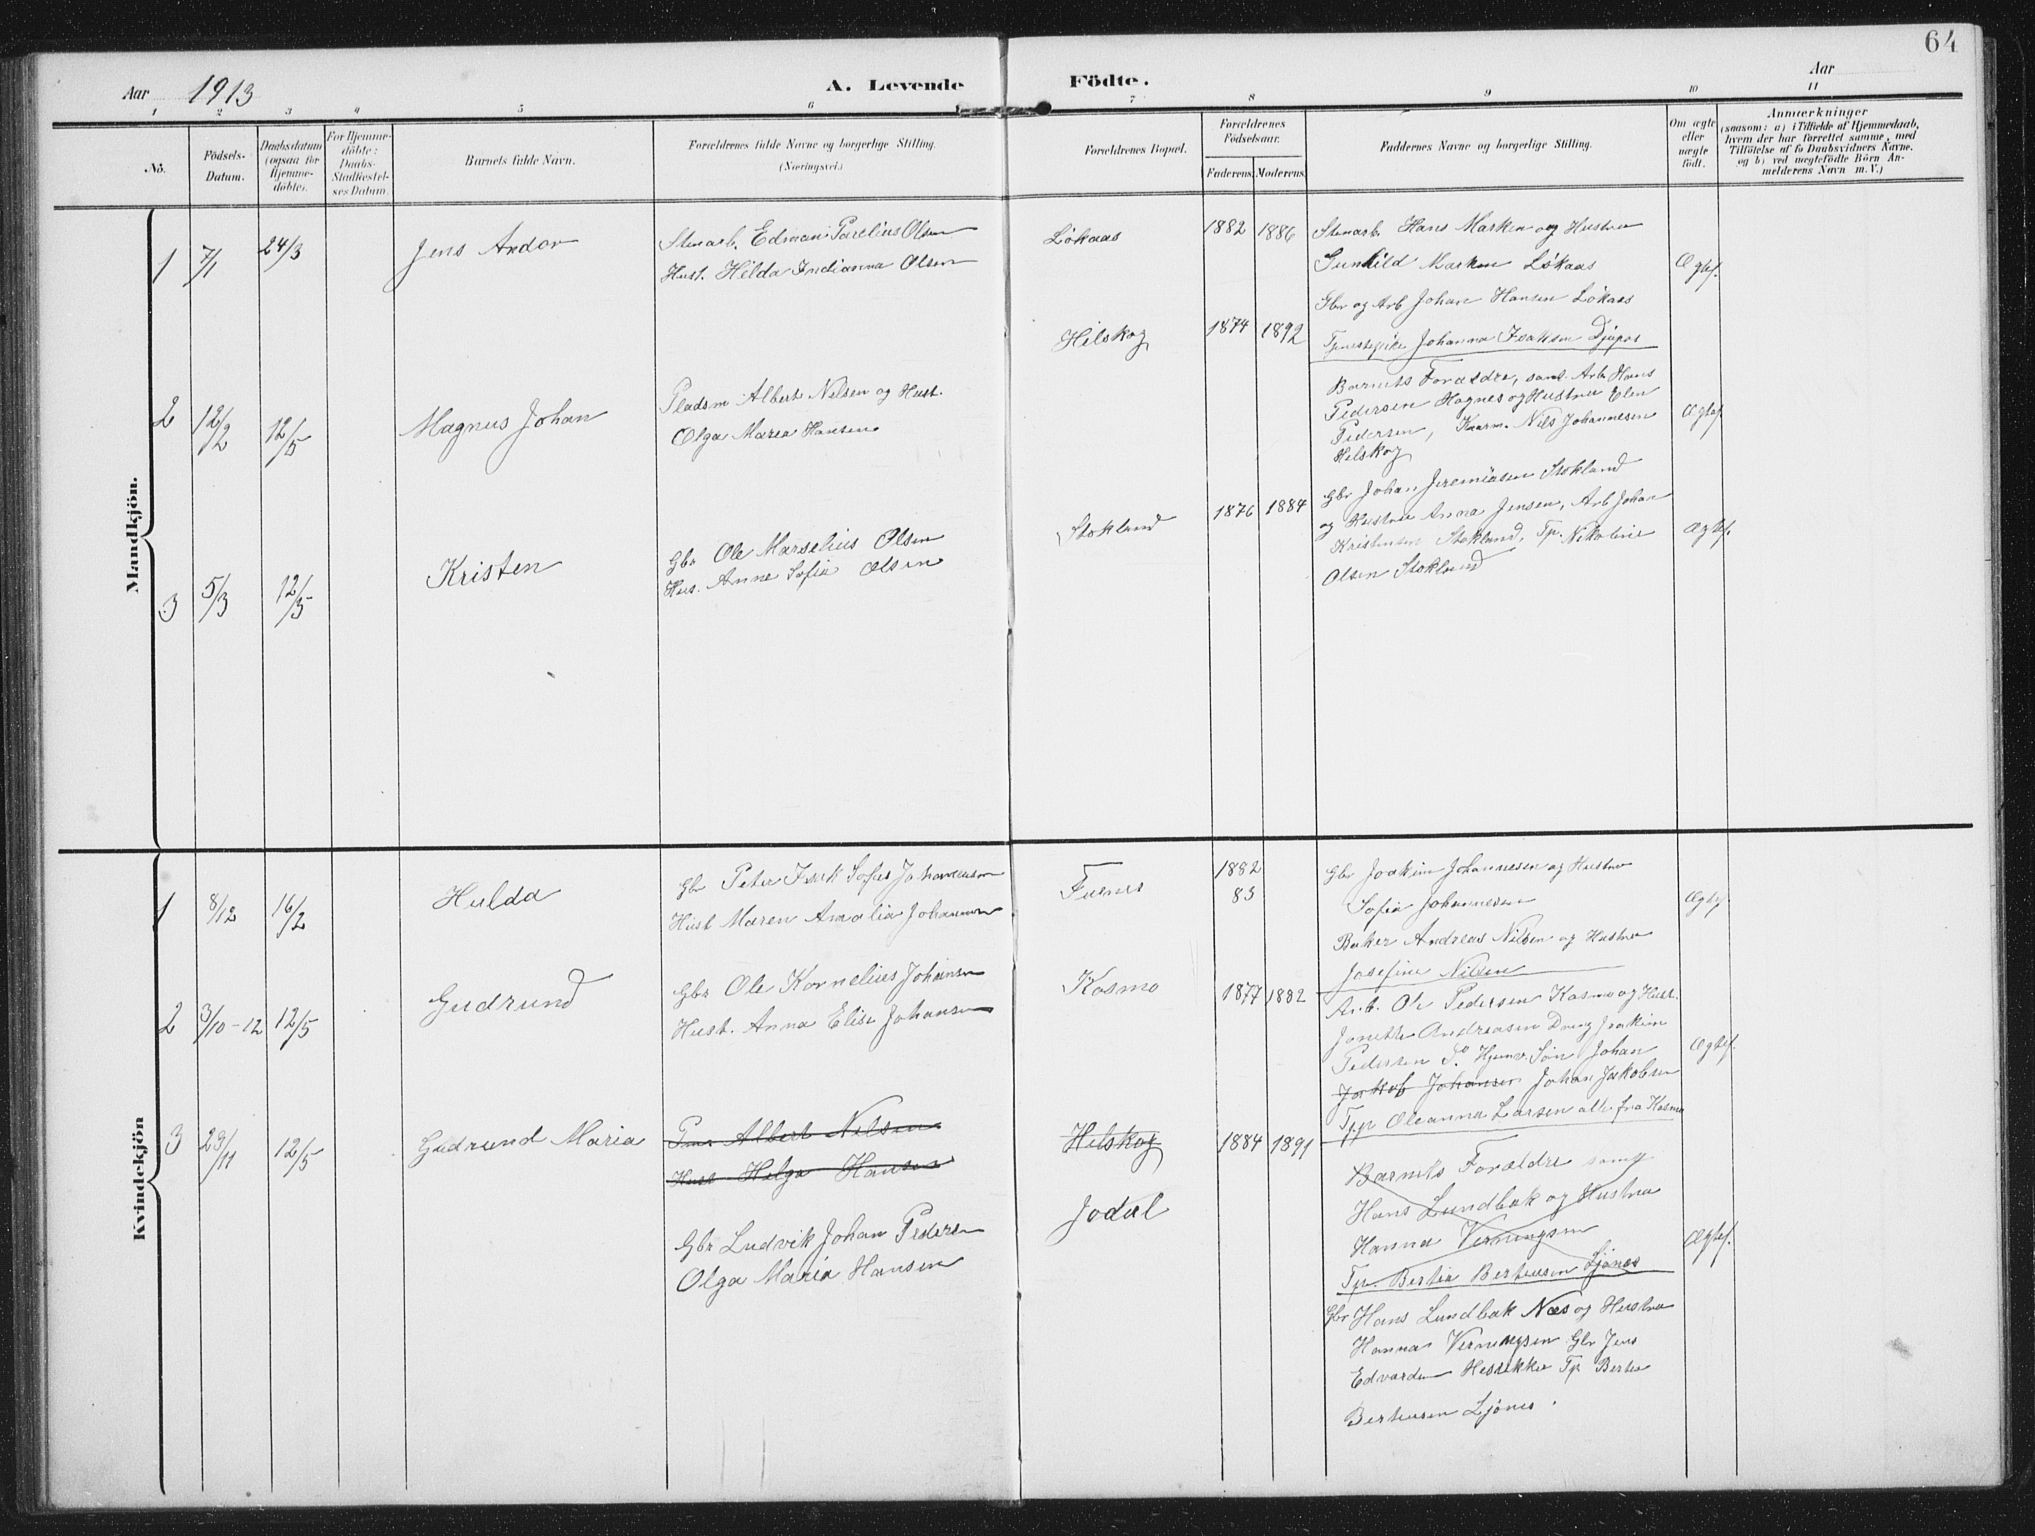 64
Aar 1913
A. Levende Födte.
Aar
1 2 3 4 5 6 7 8 9 10 11
No.
Födsels-Datum.
Daabsdatum (ogsaa for Hjemme-döbte).
For Hjemme-döbte: Daabs-Stadfæstel-ses Datum.
Barnets fulde Navn.
Forældrenes fulde Navne og borgerlige Stilling.
(Næringsvei.)
Forældrenes Bopæl.
Forældrenes Födselsaar.
Faderens. Moderens.
Faddernes Navne og borgerlige Stilling.
Om ægte eller uægte födt.
Anmærkninger
(saasom: a) i Tilfælde af Hjemmedaab,
hvem der har forrettet samme, med
Tilföielse af to Daabsvidners Navne.
og b) ved uægtefödte Börn An-
melderens Navn m. V.)
Mandkjön.
1 7/1 24/3 Jens Andor
Stenarb. Edman Parelius Olsen
Hust. Hilda Indianna Olsen
Lökaas 1882 1886
Stenarb Hans Marken og Hustru
Gunhild Marken Lökaas
Gbr og Arb Johan Hansen Lökaas
Johanna Isaksen Djupos
Ægtef.
2 12/2 12/5 Magnus Johan
Pladsm Albert Nilsen og Hust.
Olga Maria Hansen
Hilskog 1874 1892
Barnets Forældre, samt Arb Hans
Pedersen Hognes og Hustru Elen
Pedersen, Kaarm. Nils Johannesen
Helskog
Ægtef
3 5/3 12/5 Kristen
Gbr Ole Marselius Olsen
Hus. Anne Sofia Olsen
Stokland 1876 1884
Gbr Johan Jeremiasen Stokland
og Hustru Anna Jensen, Arb Johan
Kristensen Stokland, Tp. Nikoline
Olsen Stokland
Ægtef.
Kvindekjön
1 8/12 16/2 Hulda
Gbr Peter Fredk Sofus Johannesen
Hust Maren Amalia Johannesen
Fuenes 1882 83
Gbr Joakim Johannesen og Hustru
Sofia Johannesen
Baker Andreas Nilsen og Hustru
Josefine Nilsen
Ægtef.
2 3/10-12 12/5 Gudrund
Gbr Ole Kornelius Johansen
Hust. Anna Elise Johansen
Kosmo 1877 1882
Arb. Ole Pedersen Kosmo og Hust.
Jonette Andreasen Dreng Joakim
Pedersen So Hjemv. Søn Johan
Jakob Johansen Johan Jakobsen
Tpp Oleanna Larsen alle fra Kosmo
Ægtef.
3 23/11 12/5 Gudrund Maria
Pms Albert Nilsen
Hust Helga Hansen
Helskog 1884 1891
Gbr Ludvik Johan Pedersen
Olga Maria Hansen
Jodal
Barnets Forældre samt
Hans Lundbak og Hustru
Hanna Verningsen
Tp. Bertia Berteusen Ljönes
Gbr Hans Lundbak Næs og Hustru
Hanna Verningsen Gbr Jens
Edvardsen Hestekker Tp Bertea
Berteusen Ljönes.
Ægtef.